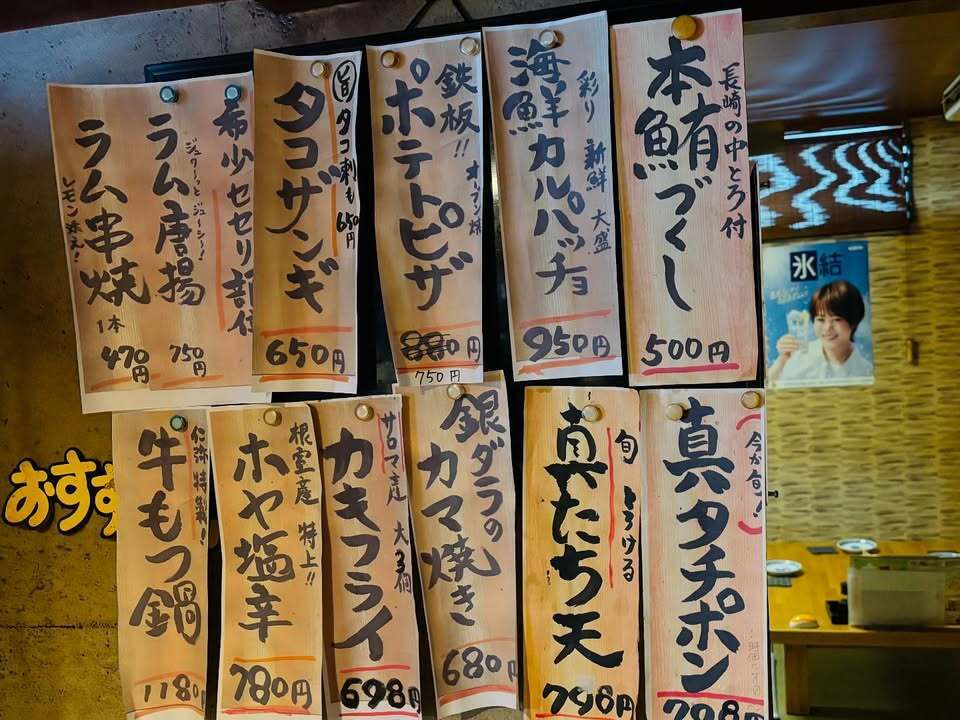 長崎の中とろ付
本鮪づくし
500円
彩り 新鮮 大盛
海鮮カルパッチョ
950円
鉄板!! オーブン焼
ポテトピザ
880円
750円
旨 タコ刺も650円
タコザンギ
650円
希少セセリ部位
ジュワーッとジューシー!
ラム唐揚
750円
ラム串焼
レモン添え!
1本
470円
(今が旬!)
真タチポン
798円
旬 とろける
真たち天
798円
銀ダラの
カマ焼き
680円
サロマ産 大3個
カキフライ
698円
根室産 特上!!
ホヤ塩辛
780円
仁弥特製!
牛もつ鍋
1180円
おすす
氷結